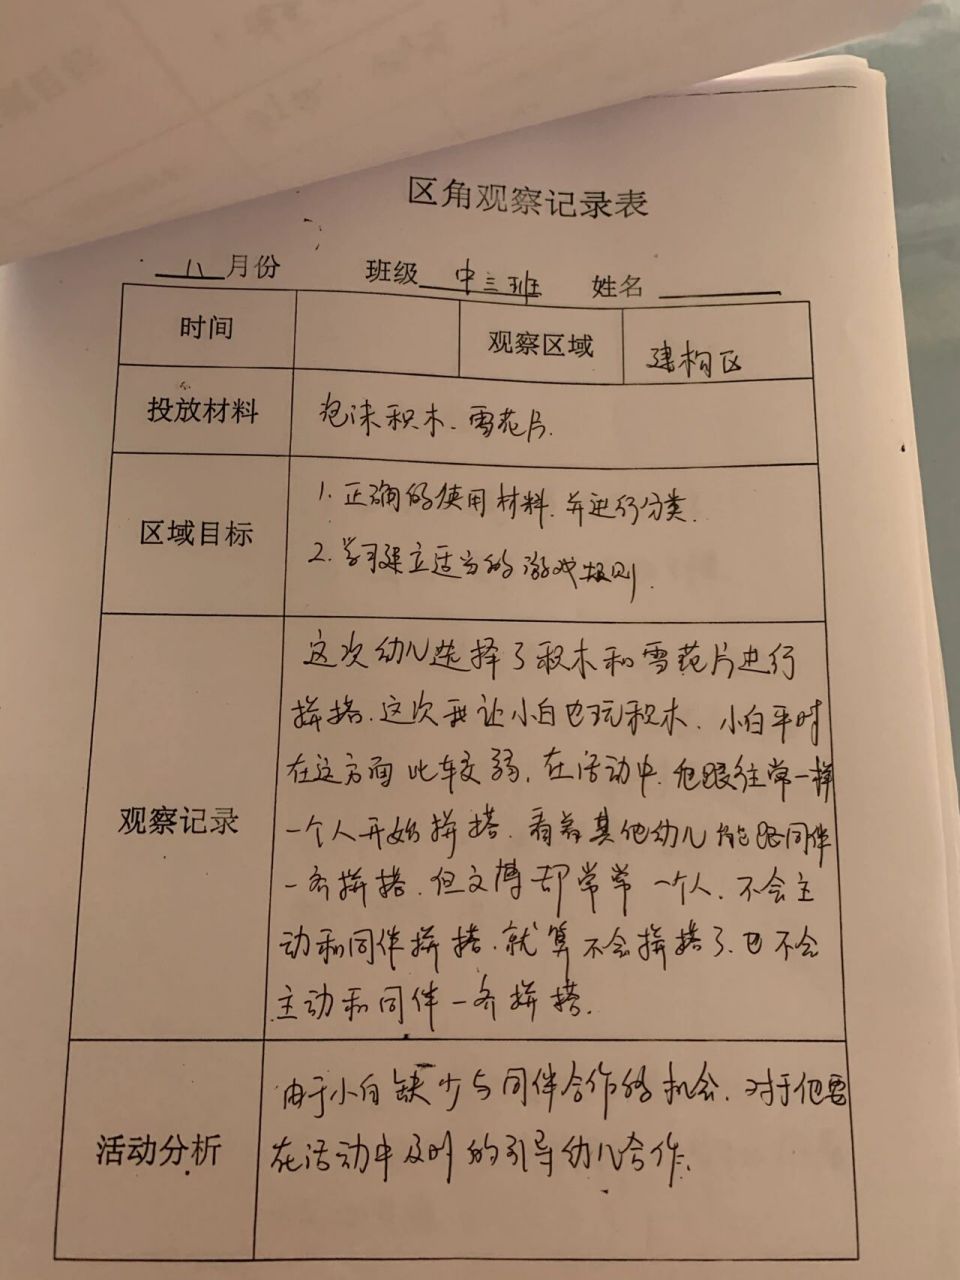 区角观察记录表
八 月份 班级 中三班 姓名
时间 观察区域 建构区
投放材料 泡沫积木、雪花片.
区域目标
1. 正确的使用材料,并进行分类.
2. 学习建立适当的游戏规则.
观察记录
这次幼儿选择了积木和雪花片进行
拼搭.这次我让小白也玩积木.小白平时
在这方面比较弱,在活动中,他跟往常一样
一个人开始拼搭.看着其他幼儿能跟同伴
一齐拼搭.但文博却常常一个人.不会主
动和同伴拼搭.就算不会拼搭了.也不会
主动和同伴一齐拼搭.
活动分析
由于小白缺少与同伴合作的机会.对于他要
在活动中及时的引导幼儿合作.